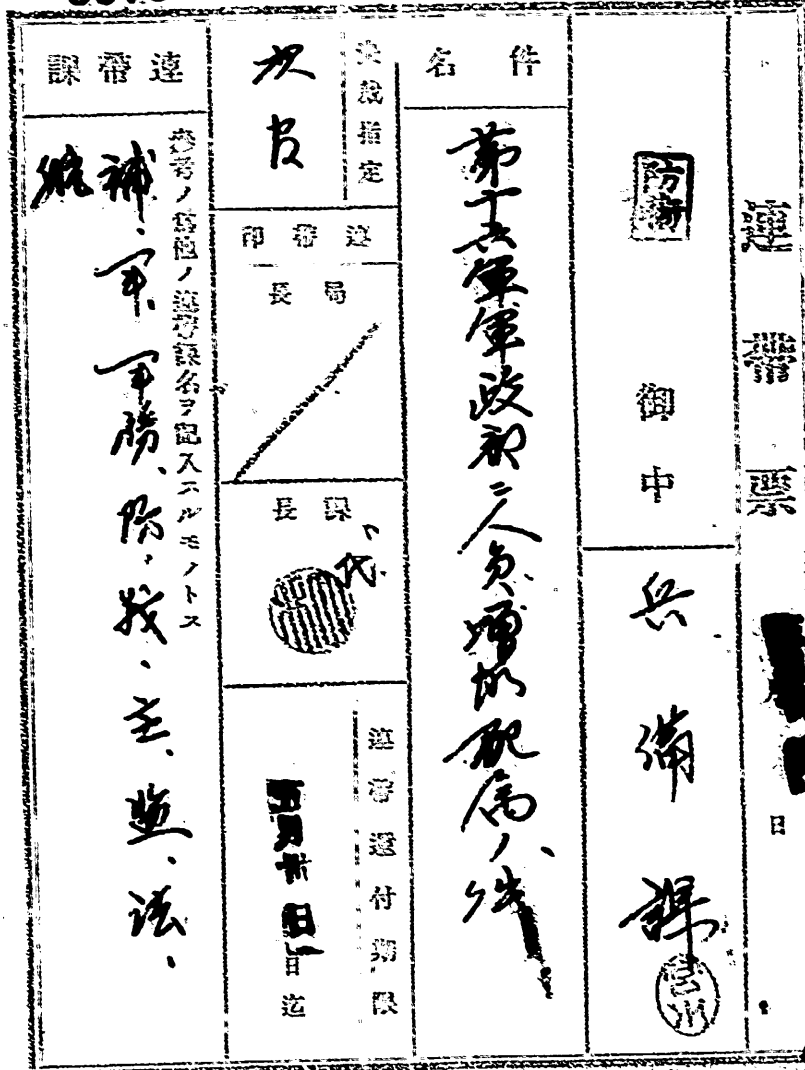 連帯票
日
防衛
御中
兵備課
件名
第十六軍軍政部ニ人員増加配属ノ件
決裁指定
次官
連帯印
局長
課長
代
連帯還付期限
日迄
連帯課
参考ノ為他ノ連帯課名ヲ記入スルモノトス
補、軍、軍務、防、戦、主、監、法、